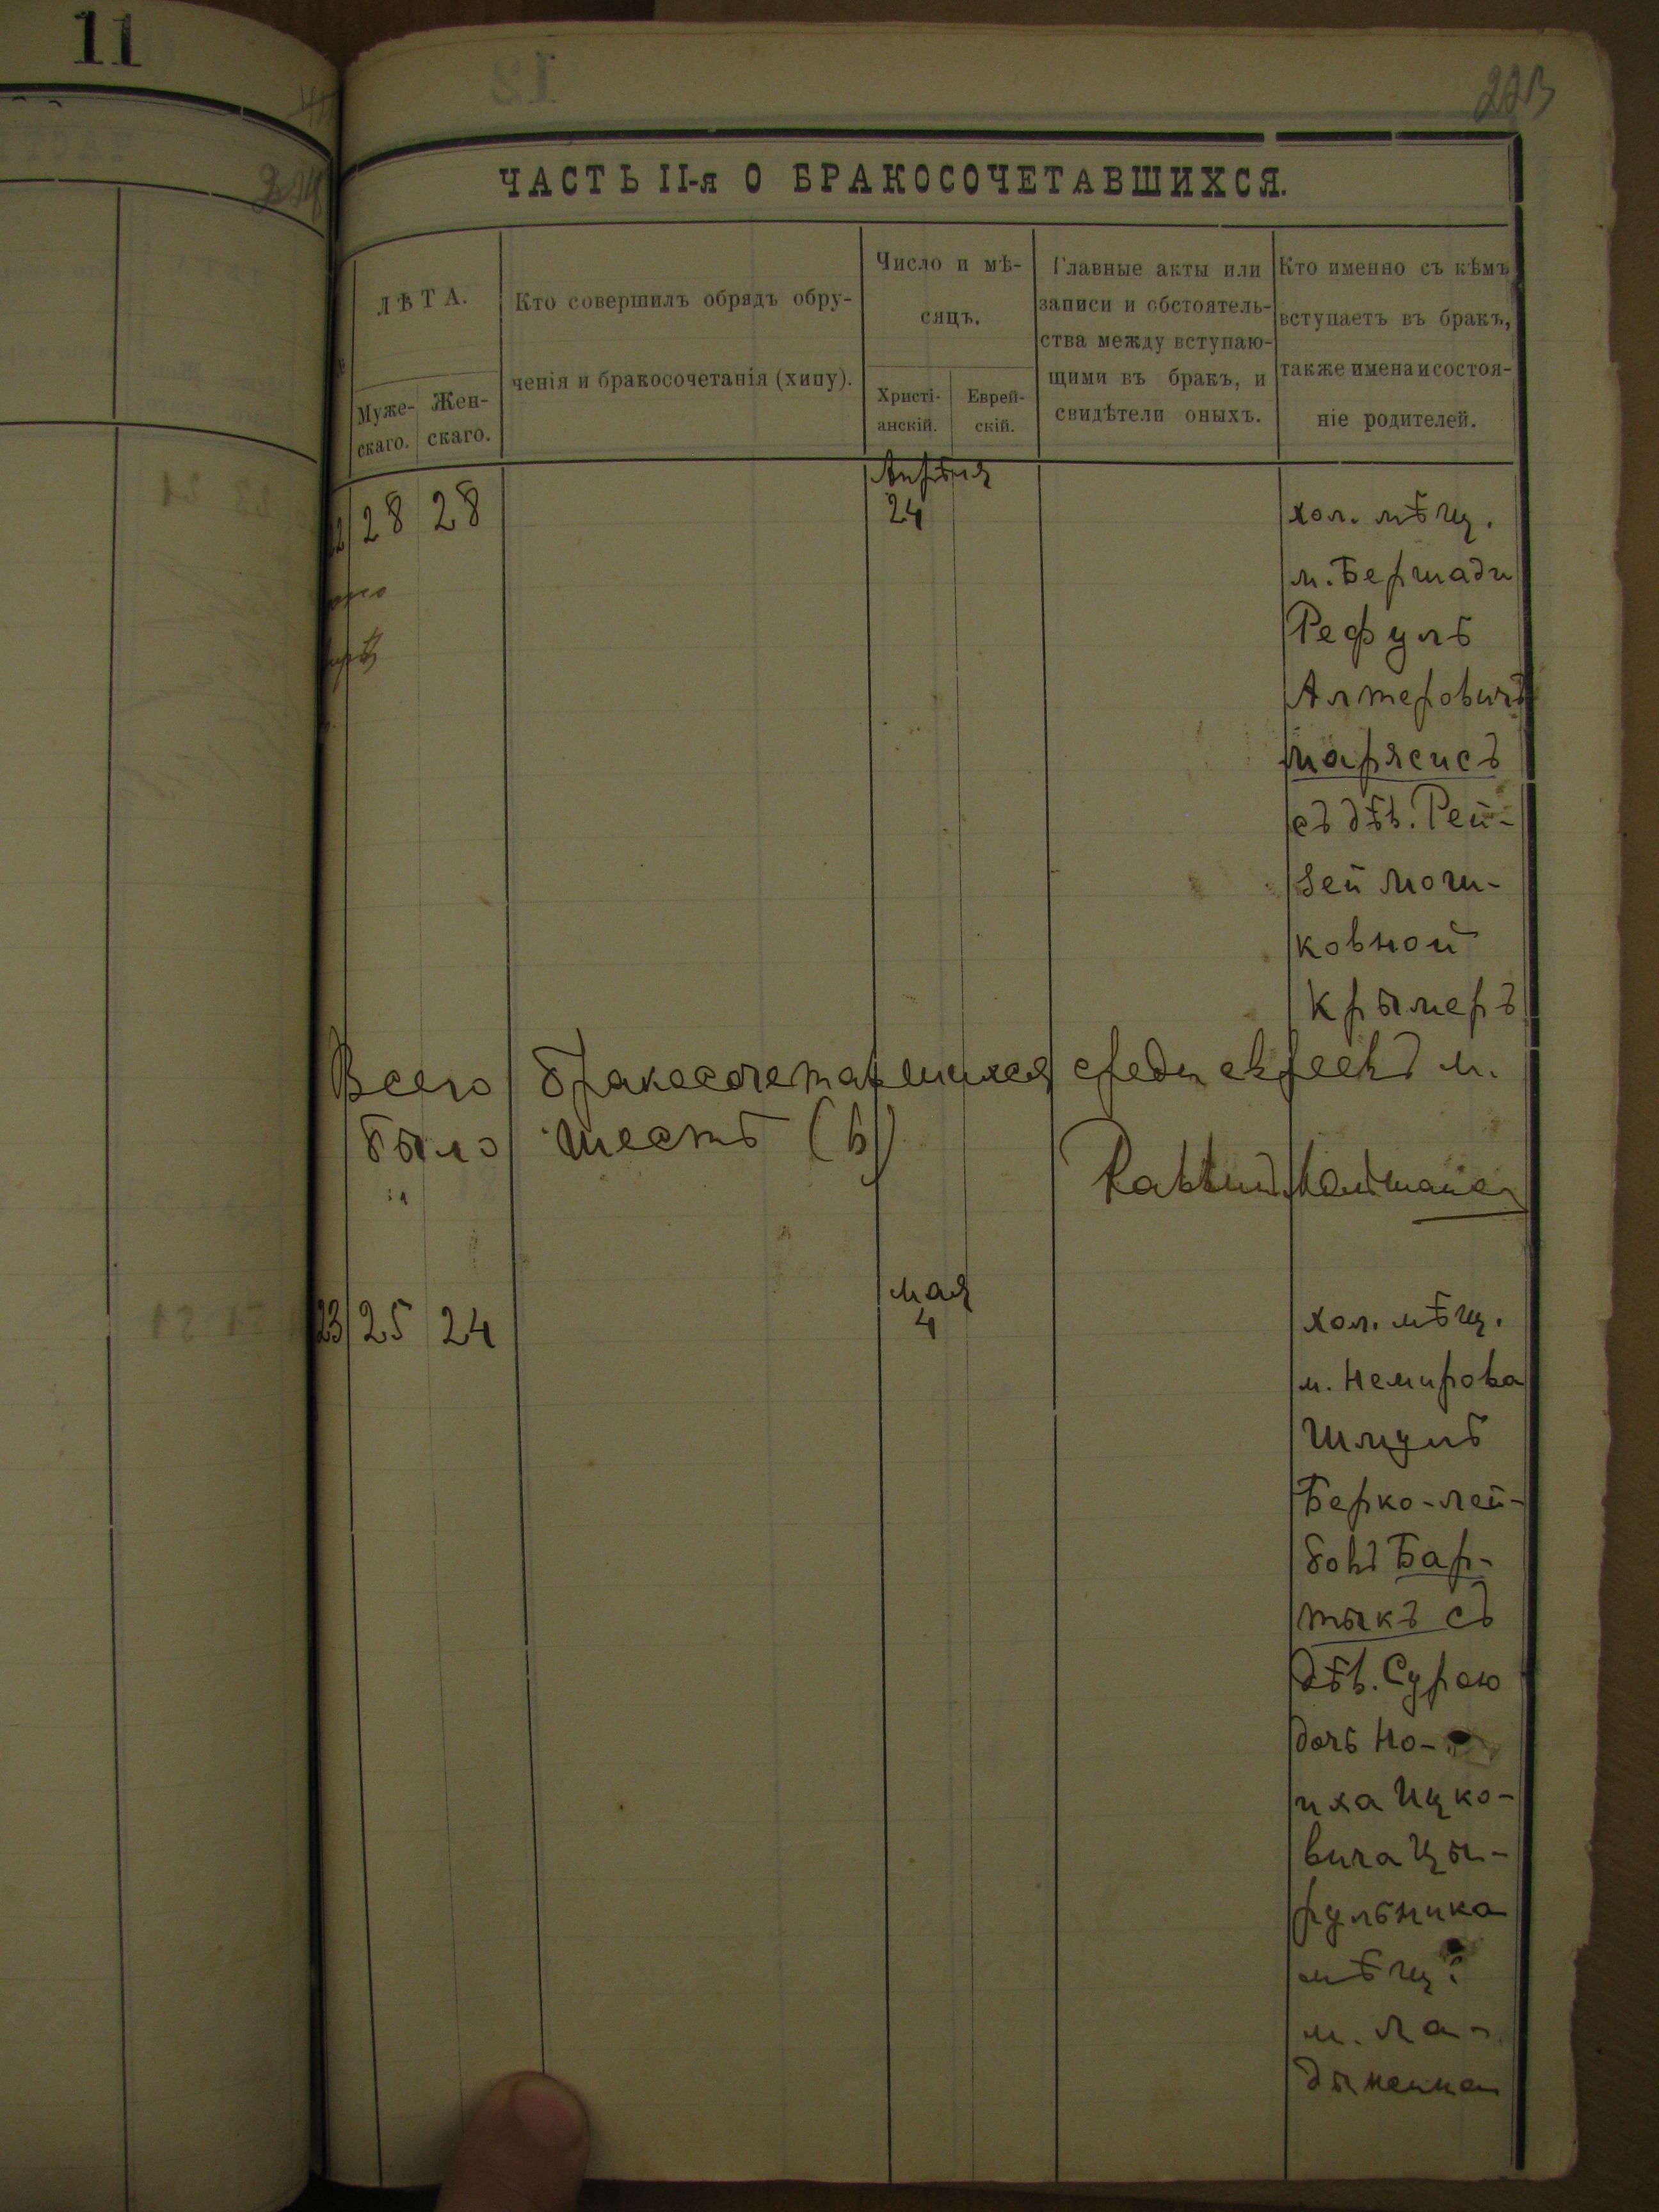 11
223
ЧАСТЬ II-я О БРАКОСОЧЕТАВШИХСЯ.
ЛѢТА.
Муже-
скаго.
Жен-
скаго.
Кто совершилъ обрядъ обру-
ченія и бракосочетанія (хипу).
Число и мѣ-
сяцъ.
Христі-
анскій.
Еврей-
скій.
Главные акты или
записи и обстоятель-
ства между вступаю-
щими въ бракъ, и
свидѣтели оныхъ.
Кто именно съ кѣмъ
вступаетъ въ бракъ,
также имена и состоя-
ніе родителей.
28 28
Апрѣля
24
хол. мѣщ.
м. Бершади
Рефулъ
Алтеровичъ
Марясисъ
съ дѣв. Рей-
зей Мош-
ковной
Крымеръ
Всего бракосочетавшихся среди евреевъ м.
было шесть (6)
Раввинъ
23 25 24
мая
4
хол. мѣщ.
м. Немирова
Шмуль
Берко-Лей-
бовъ Бар-
тыкъ съ
дѣв. Сурою
дочь Но-
иха Ицко-
вича Цы-
рульника
мѣщ.
м. Ла-
дыженка